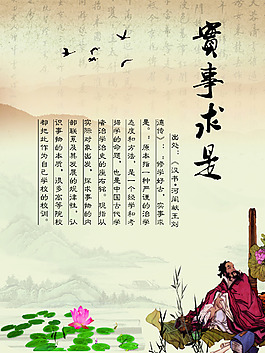 實事求是
出处：《汉书·河间献王刘
德传》：“修学好古，实事求
是。”原本指一种严谨的治学
态度和方法，是一个经学和考
据学的命题，也是中国古代学
者治学治史的座右铭。现指从
实际对象出发，探求事物的内
部联系及其发展的规律性，认
识事物的本质。很多高等院校
都把此作为自己学校的校训。